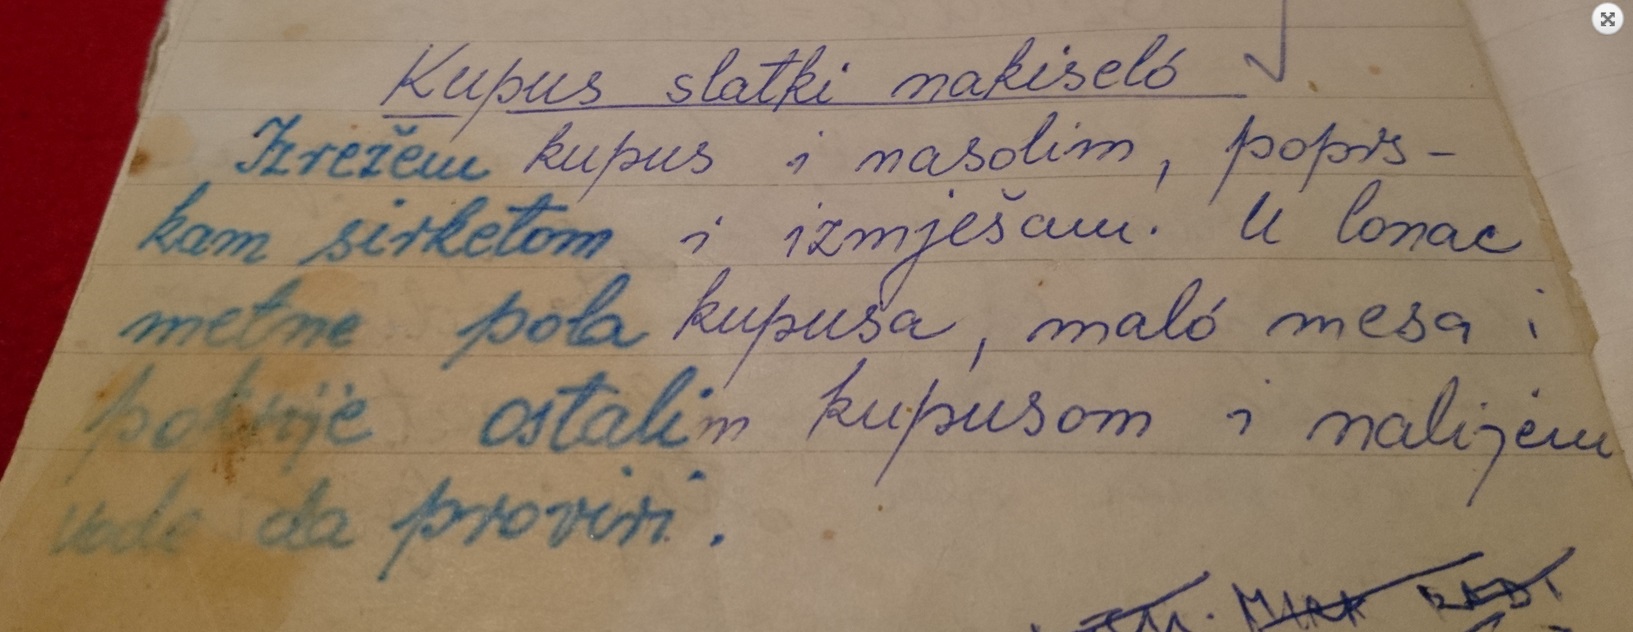 Kupus slatki nakiseló
Izrežem kupus i nasolim, poprs-
kam sirketom i izmješam. U lonac
metne pola kupusa, maló mesa i
pokrije ostalim kupusom i nalijem
vode da proviri.